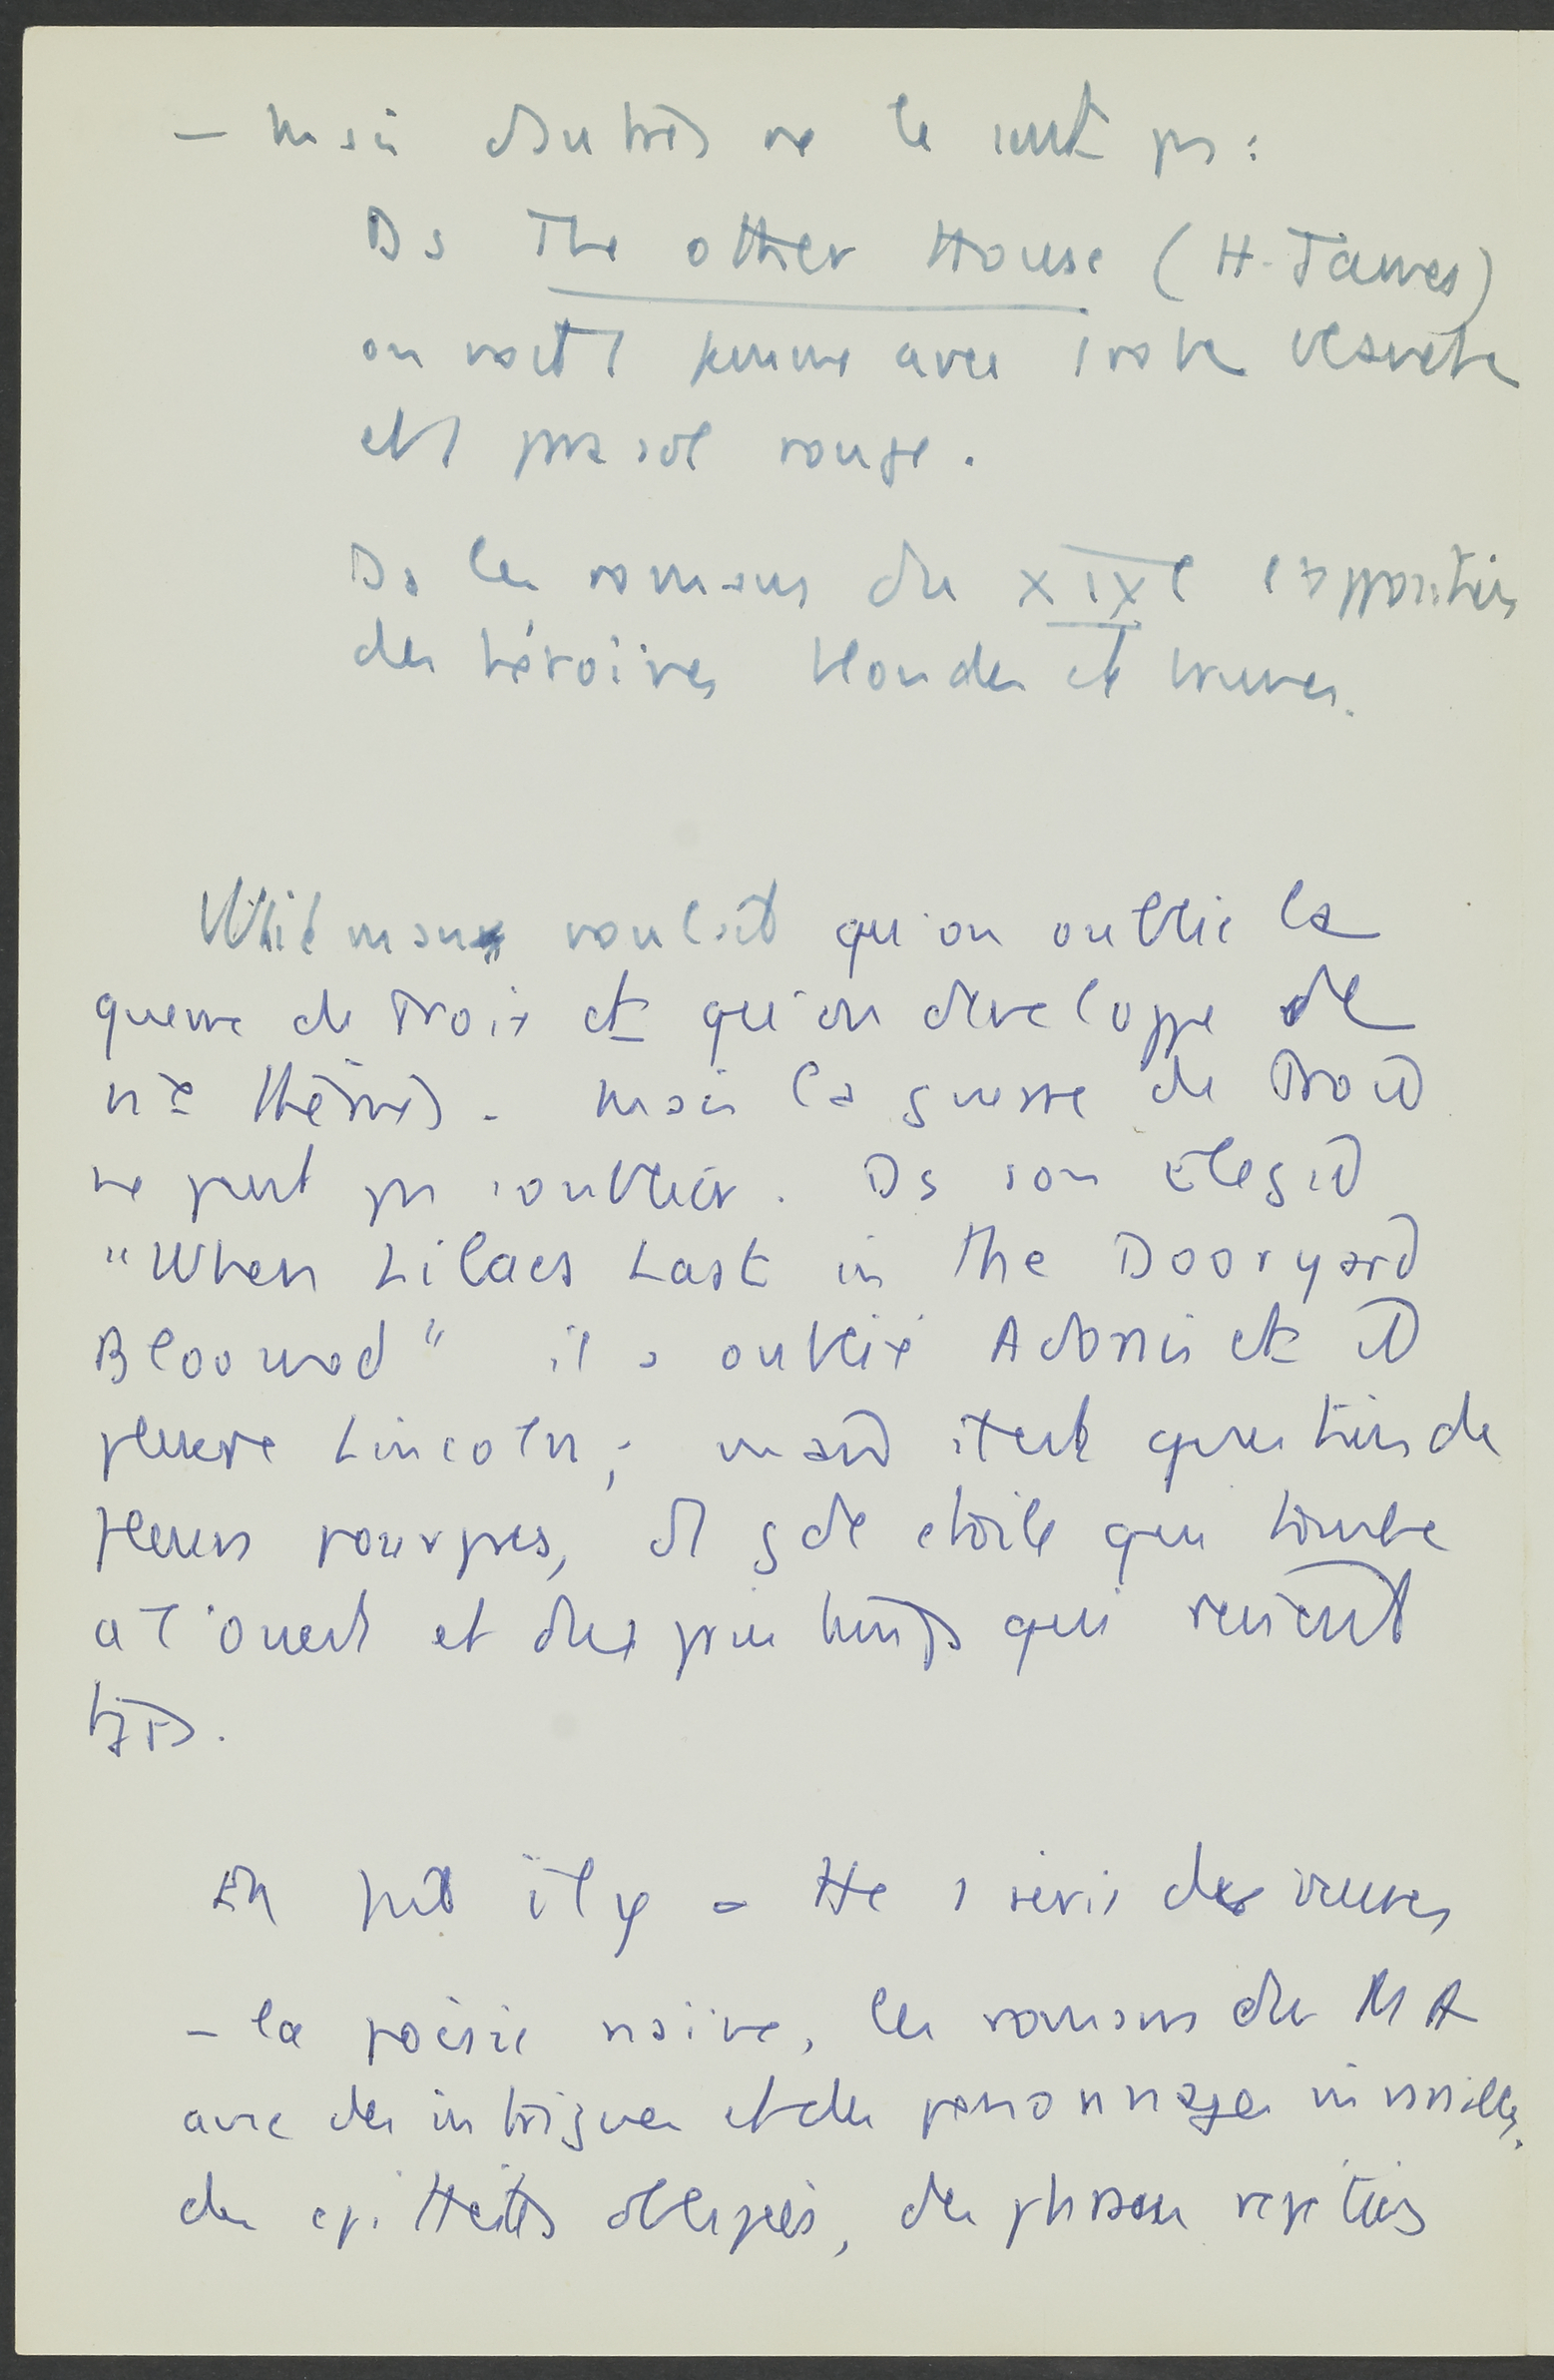 – Mais d'autres ne le sont pas :
Ds The Other House (H. James)
on voit 1 femme avec 1 robe blanche
et 1 parasol rouge.
Ds les romans du XIXe l'apparition
des héroïnes blondes et brunes.
Whitman voulait qu'on oublie la
guerre de Troie et qu'on développe de
nx thèmes. Mais la guerre de Troie
ne peut pas s'oublier. Ds son Élégie
"When Lilacs Last in the Dooryard
Bloomed" il a oublié Adonis et il
pleure Lincoln ; mais il est question de
fleurs pourpres, d' 1 gde étoile qui tombe
à l'ouest et du printemps qui revient
tjrs.
En fait il y a tte 1 série
– la poésie naïve, les romans du MA
avec des intrigues et des personnages
des épithètes obligées, des phrases répétées